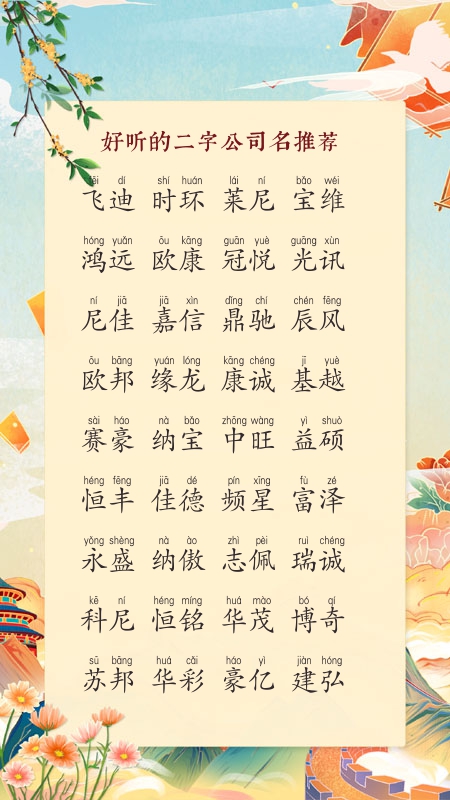 好听的二字公司名推荐
fēi dí shí huán lái ní bǎo wéi
飞迪 时环 莱尼 宝维
hóng yuǎn ōu kāng guān yuè guāng xùn
鸿远 欧康 冠悦 光讯
ní jiā jiā xìn dǐng chí chén fēng
尼佳 嘉信 鼎驰 辰风
ōu bāng yuán lóng kāng chéng jī yuè
欧邦 缘龙 康诚 基越
sài háo nà bǎo zhōng wàng yì shuò
赛豪 纳宝 中旺 益硕
héng fēng jiā dé pín xīng fù zé
恒丰 佳德 频星 富泽
yǒng shèng nà ào zhì pèi ruì chéng
永盛 纳傲 志佩 瑞诚
kē ní héng míng huá mào bó qí
科尼 恒铭 华茂 博奇
sū bāng huá cǎi háo yì jiàn hóng
苏邦 华彩 豪亿 建弘